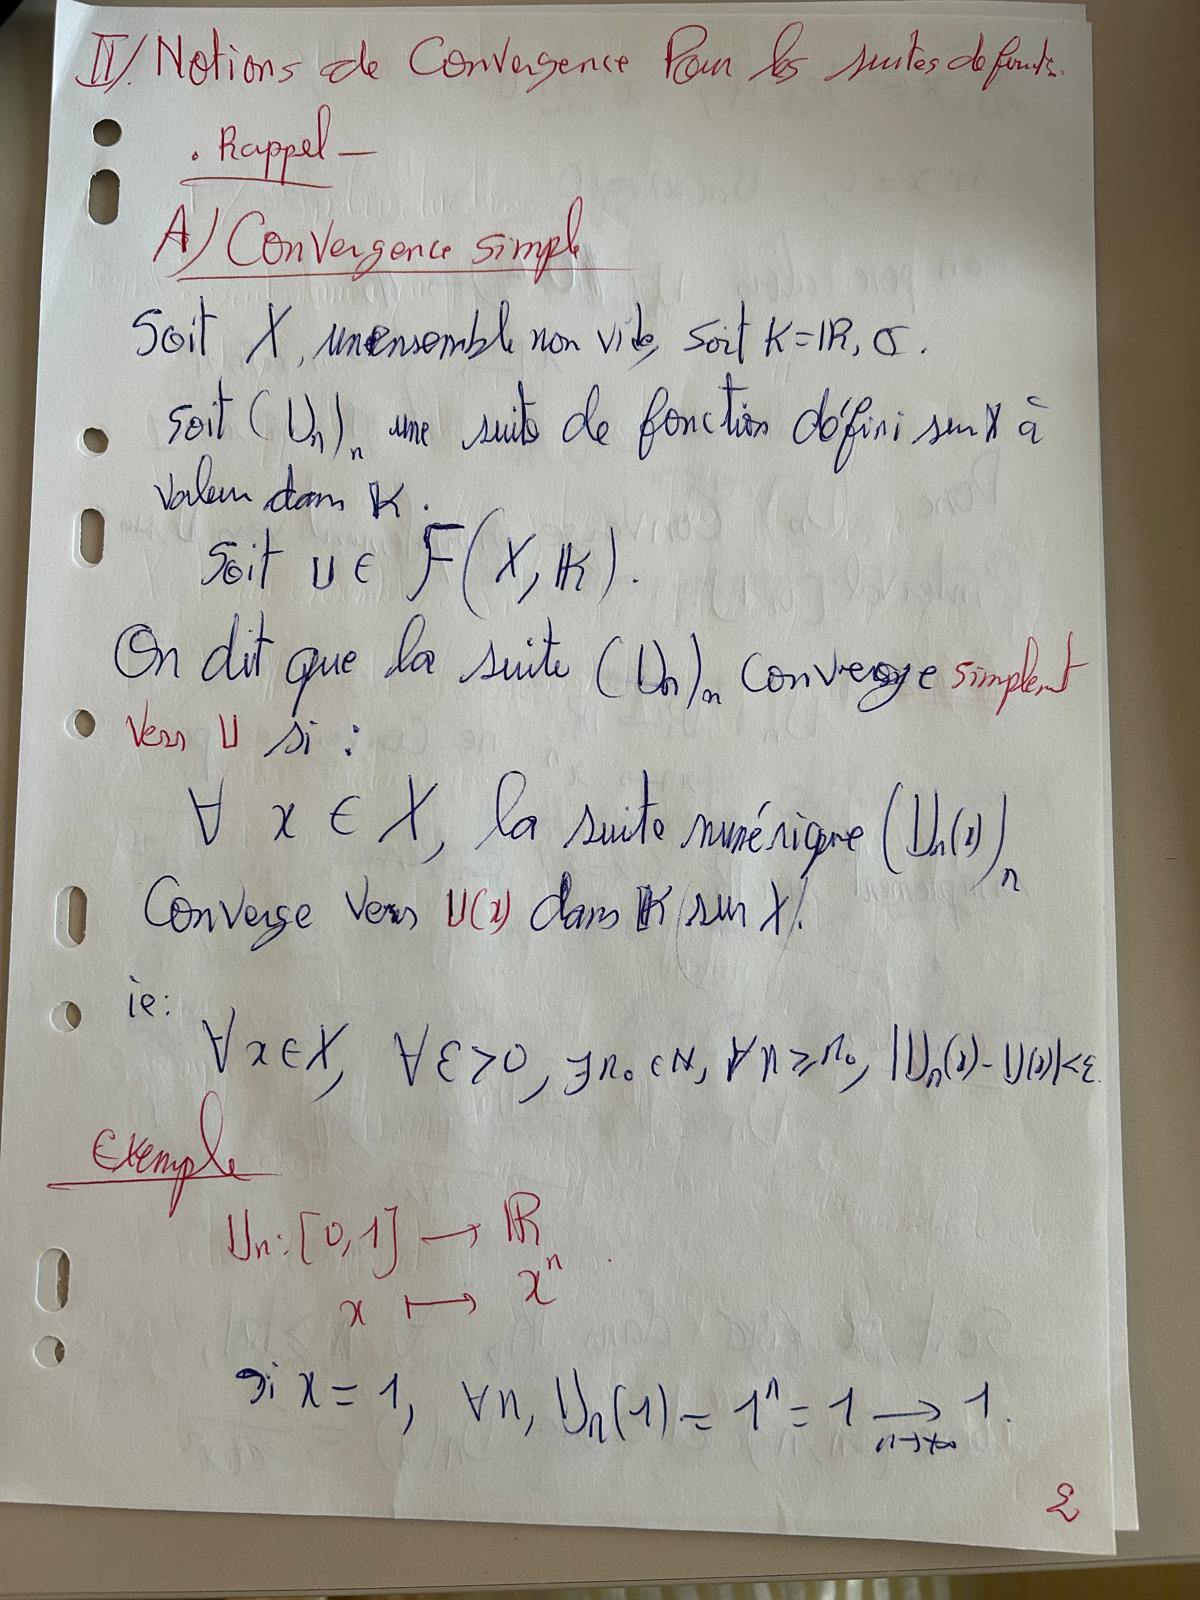 II/. Notions de Convergence Pour les suites de foncts.
. Rappel —
A) Convergence simple
Soit X, un ensemble non vide, soit K = ℝ, ℂ.
soit (Un)n une suite de fonction défini sur X à
valeur dans K.
soit U ∈ F(X, K).
On dit que la suite (Un)n converge simplent
vers U si :
∀ x ∈ X, la suite numérique (Un(x))n
Converge vers U(x) dans K (sur X).
ie:
∀x∈X, ∀ε>0, ∃n₀ ∈ℕ, ∀n≥n₀, |Un(x)-U(x)|<ε.
Exemple
Un: [0,1] → ℝ
x ↦ xⁿ
si x = 1, ∀n, Un(1) = 1ⁿ = 1 → 1.
n→+∞
2